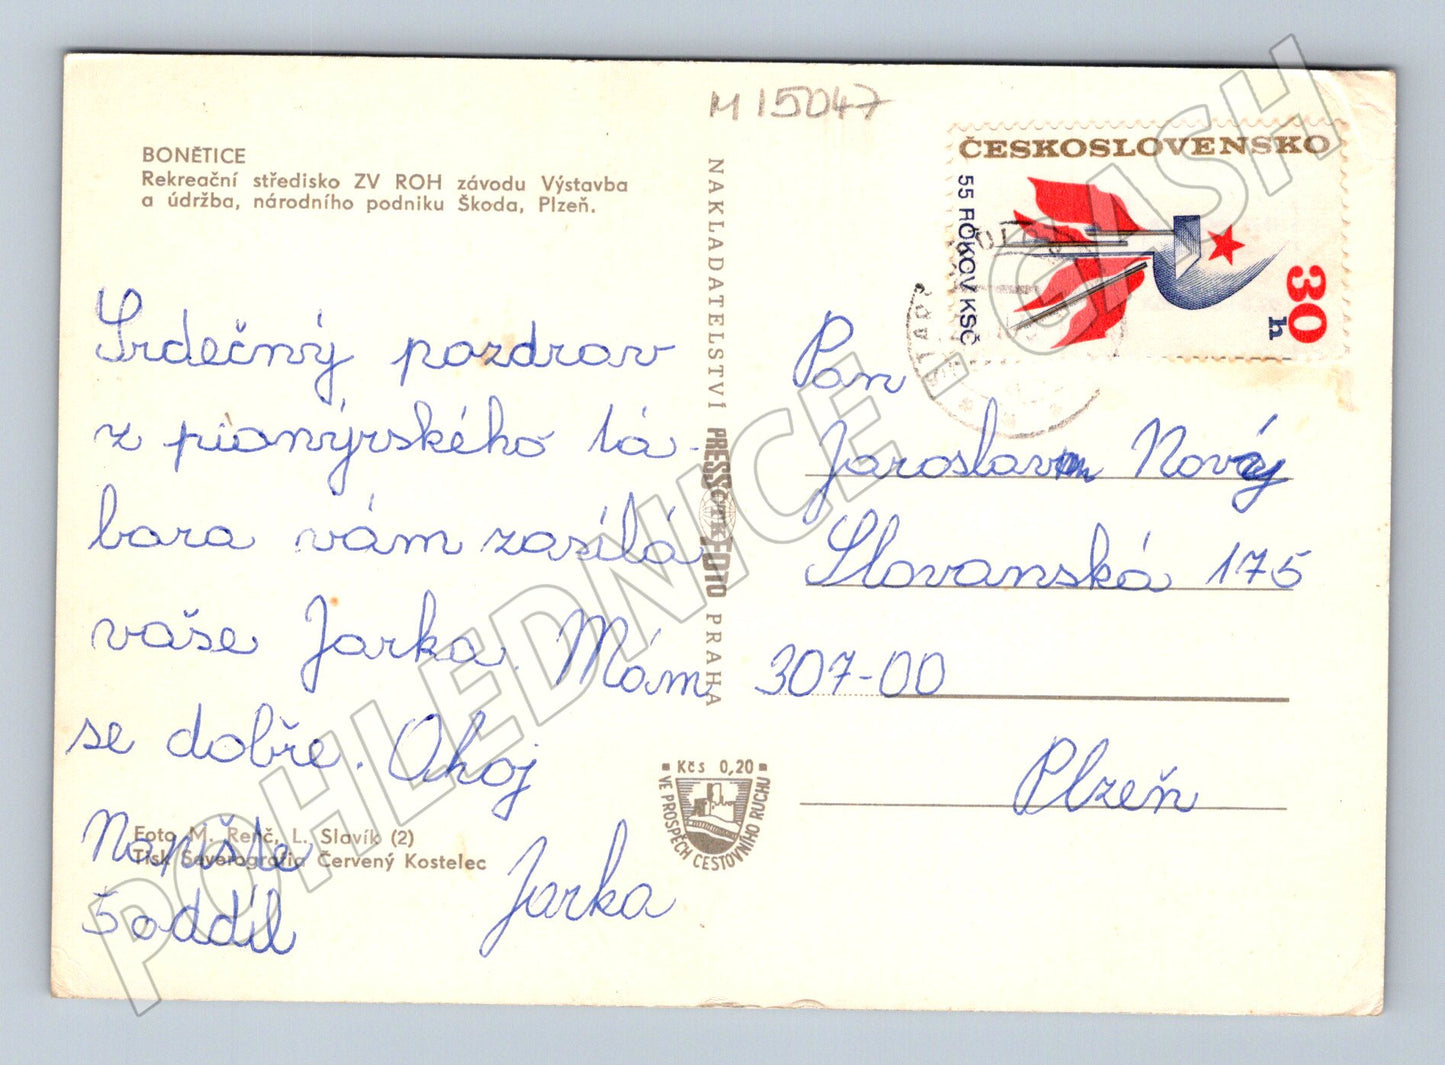 M 15047
BONĚTICE
Rekreační středisko ZV ROH závodu Výstavba
a údržba, národního podniku Škoda, Plzeň.
Srdečný pozdrav
z pianýrského tá-
bora vám zasílá
vaše Jarka. Mám
se dobře. Ahoj
Napište
Jarka
5 oddíl
Foto M. Renč, L. Slavík (2)
Tisk Severografia Červený Kostelec
NAKLADATELSTVÍ PRESSFOTO PRAHA
Kčs 0,20
VE PROSPĚCH CESTOVNÍHO RUCHU
ČESKOSLOVENSKO
55 ROKOV KSČ
30 h
Pan
Jaroslav Nový
Slovanská 175
307-00
Plzeň
POHLEDNICE.CASH